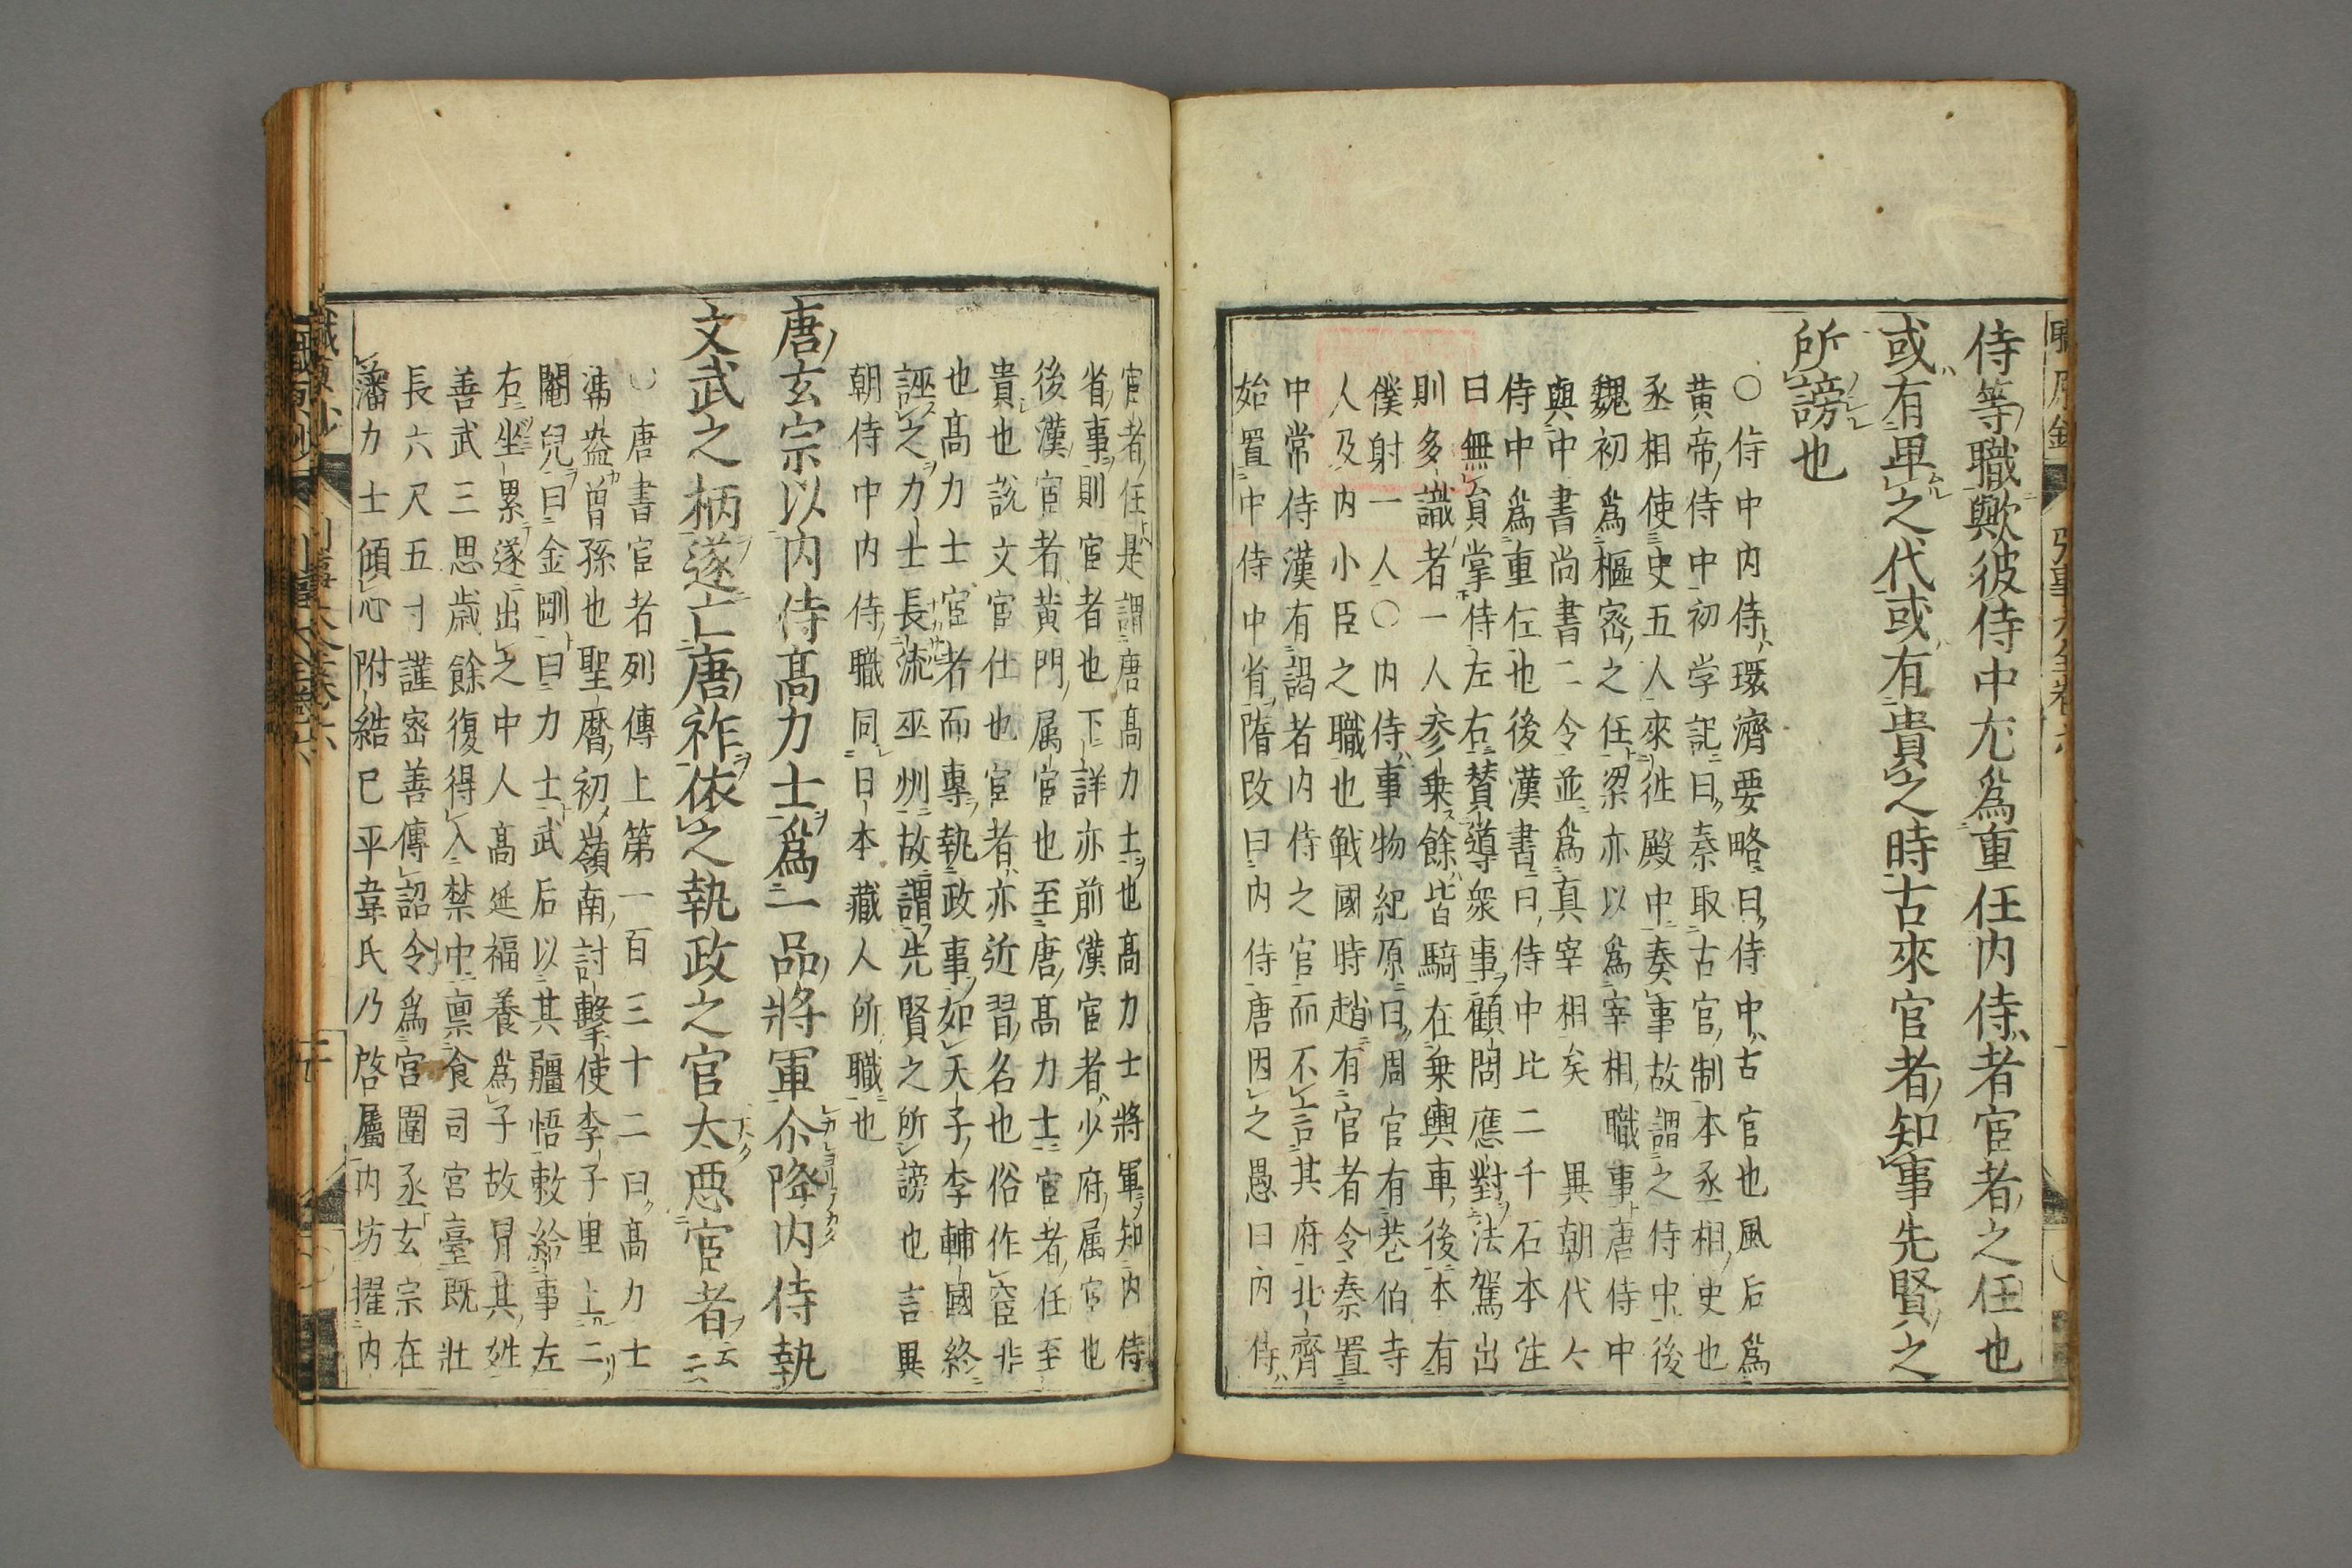 侍等職歟彼侍中尤為重任内侍者宦者之任也
或有卑之代或有貴之時古來官者知事先賢之
所謗也
〇侍中内侍環濟要略曰侍中古官也風后為
黄帝侍中初学記曰秦取古官制本丞相史也
丞相使史五人來徃殿中奏事故謂之侍中後
魏初為樞宻之任梁亦以為宰相職事唐侍中
與中書尚書二令並為真宰相矣 異朝代々
侍中為重任也後漢書曰侍中比二千石本注
曰無員掌侍左右賛導衆事顧問應對法駕出
則多識者一人参乗餘皆騎在乗輿車後本有
僕射一人〇内侍事物紀原曰周官有巷伯寺
人及内小臣之職也戦國時趙有宦者令秦置
中常侍漢有謁者内侍之官而不言其府北齊
始置中侍中省隋改曰内侍唐因之愚曰内侍
宦者任是謂唐髙力士也髙力士將軍知内侍
省事則宦者也下詳亦前漢宦者少府属官也
後漢宦者黄門属官也至唐髙力士宦者任至
貴也説文宦仕也宦者亦近習名也俗作䆠非
也髙力士宦者而專執政事如天子李輔國終
誣之力士長流巫州故謂先賢之所謗也言異
朝侍中内侍職同日本藏人所職也
唐玄宗以内侍髙力士為一品將軍尒降内侍執
文武之柄遂亡唐祚依之執政之官太悪宦者云云
〇唐書宦者列傳上第一百三十二曰髙力士
馮盎曽孫也聖暦初嶺南討擊使李千里上二
閹兒曰金剛曰力士武后以其彊悟敕給事左
右坐累遂出之中人髙延福養為子故冒其姓
善武三思歳餘復得入禁中禀食司宮臺既壯
長六尺五寸謹宻善傳詔令為宮圍丞玄宗在
藩力士傾心附結已平韋氏乃啓屬内坊擢内